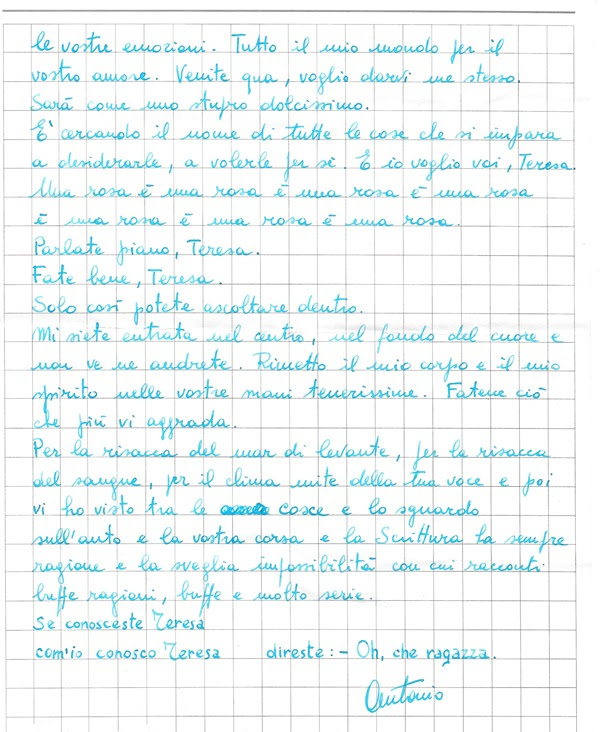 le vostre emozioni. Tutto il mio mondo per il
vostro amore. Venite qua, voglio darvi me stesso.
Sarà come uno stupro dolcissimo.
E' cercando il nome di tutte le cose che si impara
a desiderarle, a volerle per sé. E io voglio voi, Teresa.
Una rosa è una rosa è una rosa è una rosa
è una rosa è una rosa è una rosa.
Parlate piano, Teresa.
Fate bene, Teresa.
Solo così potete ascoltare dentro.
Mi siete entrata nel centro, nel fondo del cuore e
non ve ne andrete. Rimetto il mio corpo e il mio
spirito nelle vostre mani tenerissime. Fatene ciò
che più vi aggrada.
Per la risacca del mar di levante, per la risacca
del sangue, per il clima mite della tua voce e poi
vi ho visto tra le cosce e lo sguardo
sull'auto e la vostra corsa e la Scrittura ha sempre
ragione e la sveglia impossibilità con cui racconti
buffe ragioni, buffe e molto serie.
Se conosceste Teresa
com'io conosco Teresa direste: - Oh, che ragazza.
Antonio